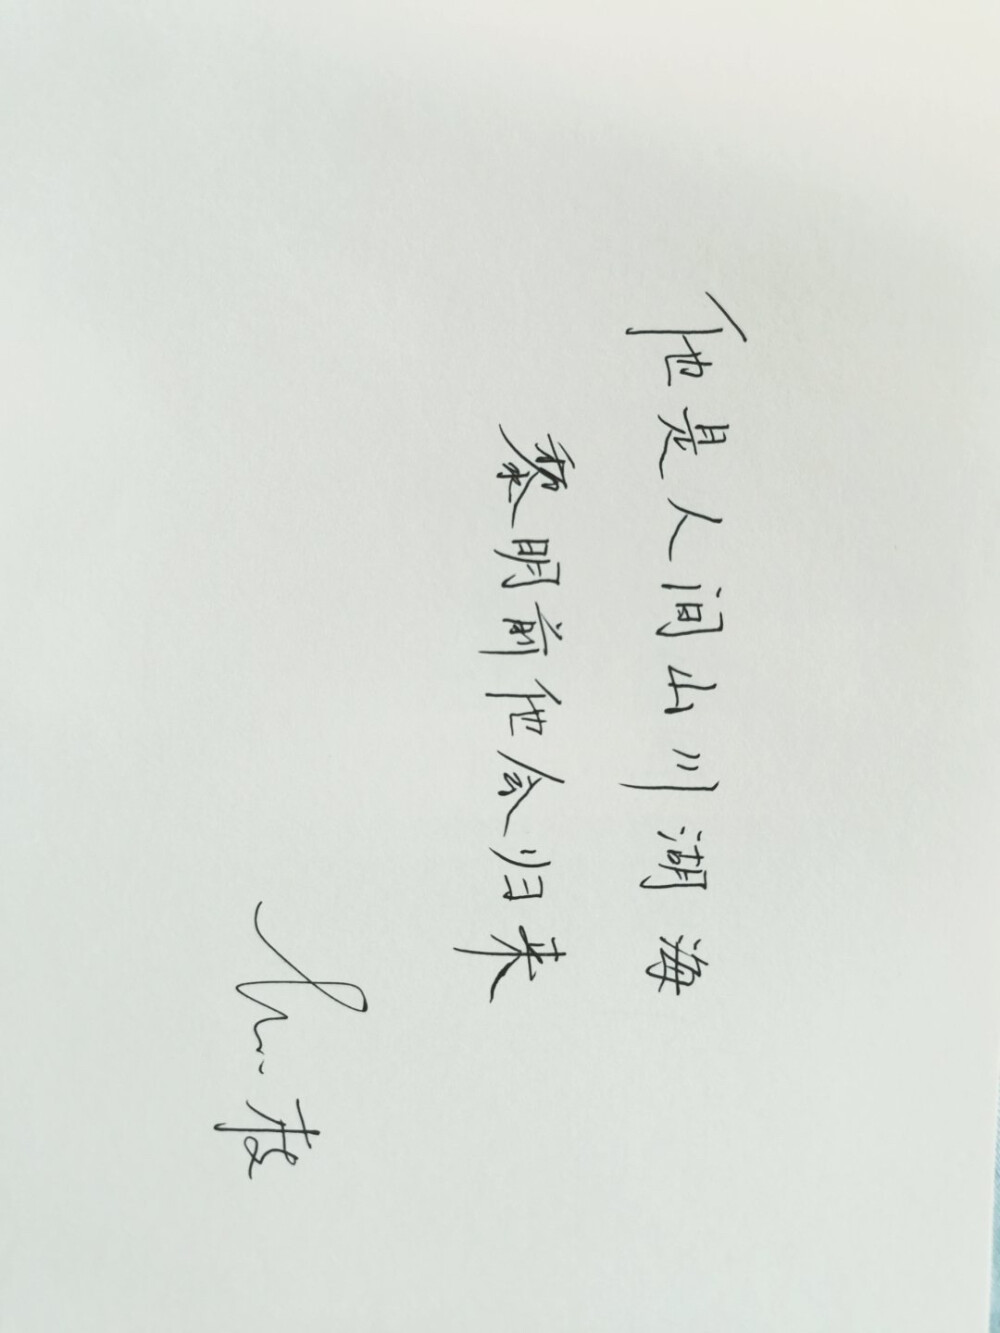 他是人间山川湖海
黎明前他会归来